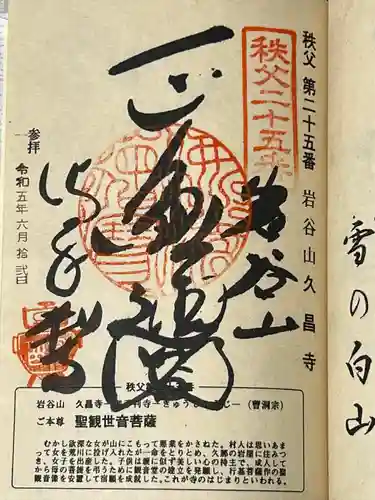 秩父 第二十五番 岩谷山久昌寺
秩父二十五番
岩谷山
参拝
令和五年六月拾弐日
御手判
秩父
岩谷山 久昌寺
(曹洞宗)
ご本尊 聖観世音菩薩
むかし欲深な女が山にこもって悪業をかさねた。村人は思いあま
って、女を荒川に投げ入れたが一命をとりとめ、久那の岩屋に住みつ
き、女子を出産した。子供は親に似ず美しい心の持主で、成人して
から母の菩提を弔うために観音堂の建立を発願し、行基菩薩作の聖
観音像を安置して宿願を成就した。これが寺のはじまりといわれる。
雪の白山